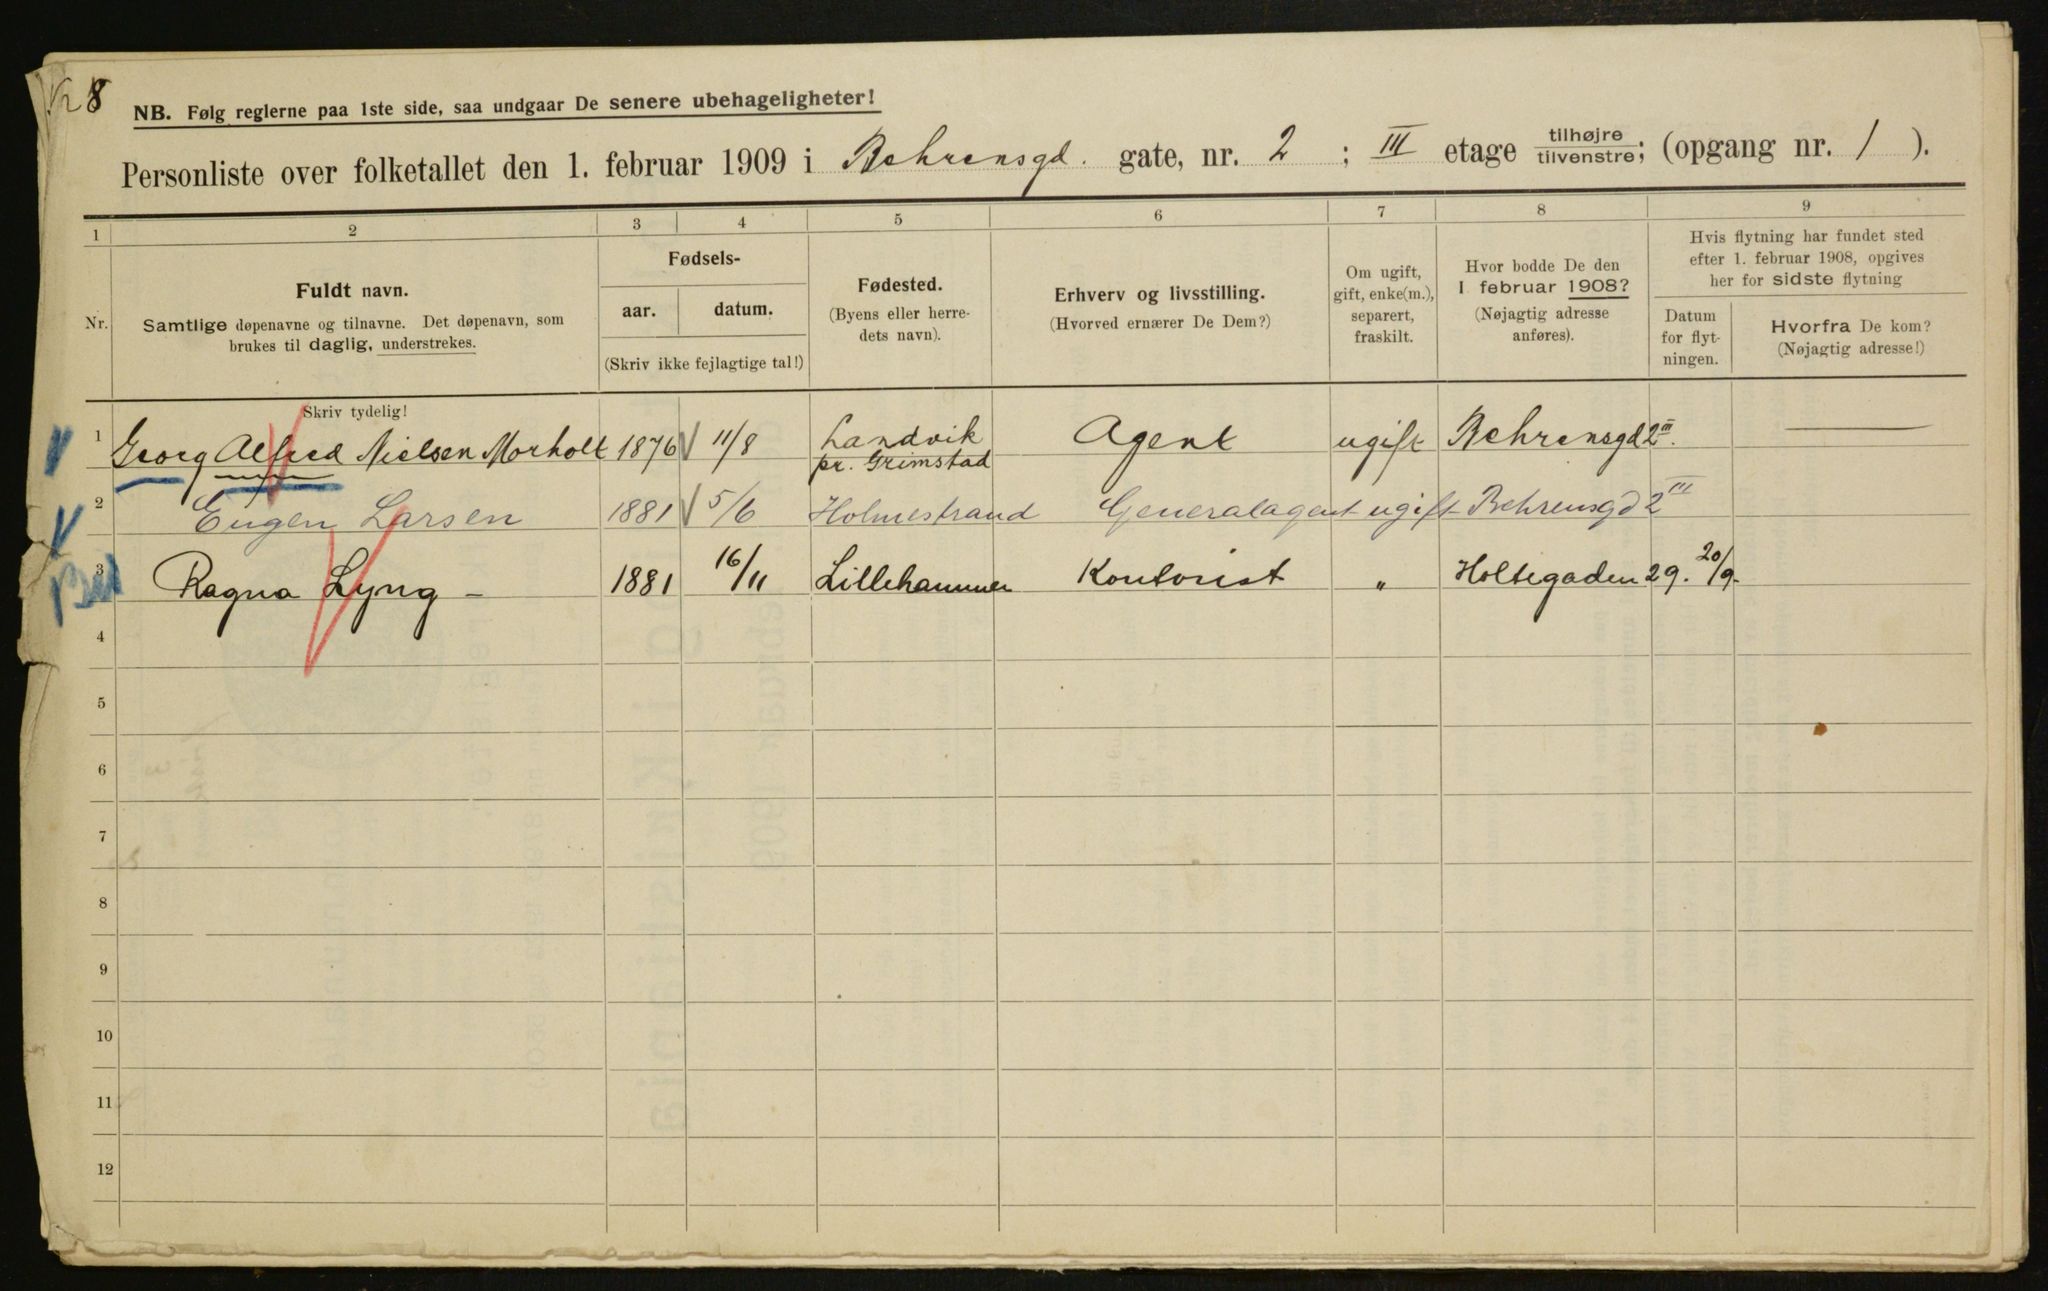 8
NB. Følg reglerne paa 1ste side, saa undgaar De senere ubehageligheter!
Personliste over folketallet den 1. februar 1909 i Behrensgd. gate, nr. 2 ; III etage tilhøjre/tilvenstre; (opgang nr. 1 ).
1 2 3 4 5 6 7 8 9
Nr.
Fuldt navn.
Samtlige døpenavne og tilnavne. Det døpenavn, som
brukes til daglig, understrekes.
Fødsels-
aar. datum.
(Skriv ikke fejlagtige tal!)
Fødested.
(Byens eller herre-
dets navn).
Erhverv og livsstilling.
(Hvorved ernærer De Dem?)
Om ugift,
gift, enke(m.),
separert,
fraskilt.
Hvor bodde De den
1 februar 1908?
(Nøjagtig adresse
anføres).
Hvis flytning har fundet sted
efter 1. februar 1908, opgives
her for sidste flytning
Datum
for flyt-
ningen.
Hvorfra De kom?
(Nøjagtig adresse!)
Skriv tydelig!
1 Georg Alfred Nielsen Morholt 1876 11/8 Landvik pr. Grimstad Agent ugift Behrensgd 2 III.
2 Eugen Larsen 1881 5/6 Holmestrand Generalagent ugift Behrensgd 2 III
3 Ragna Lyng – 1881 16/11 Lillehammer Kontorist " Holtegaden 29. 20/9-
4
5
6
7
8
9
10
11
12